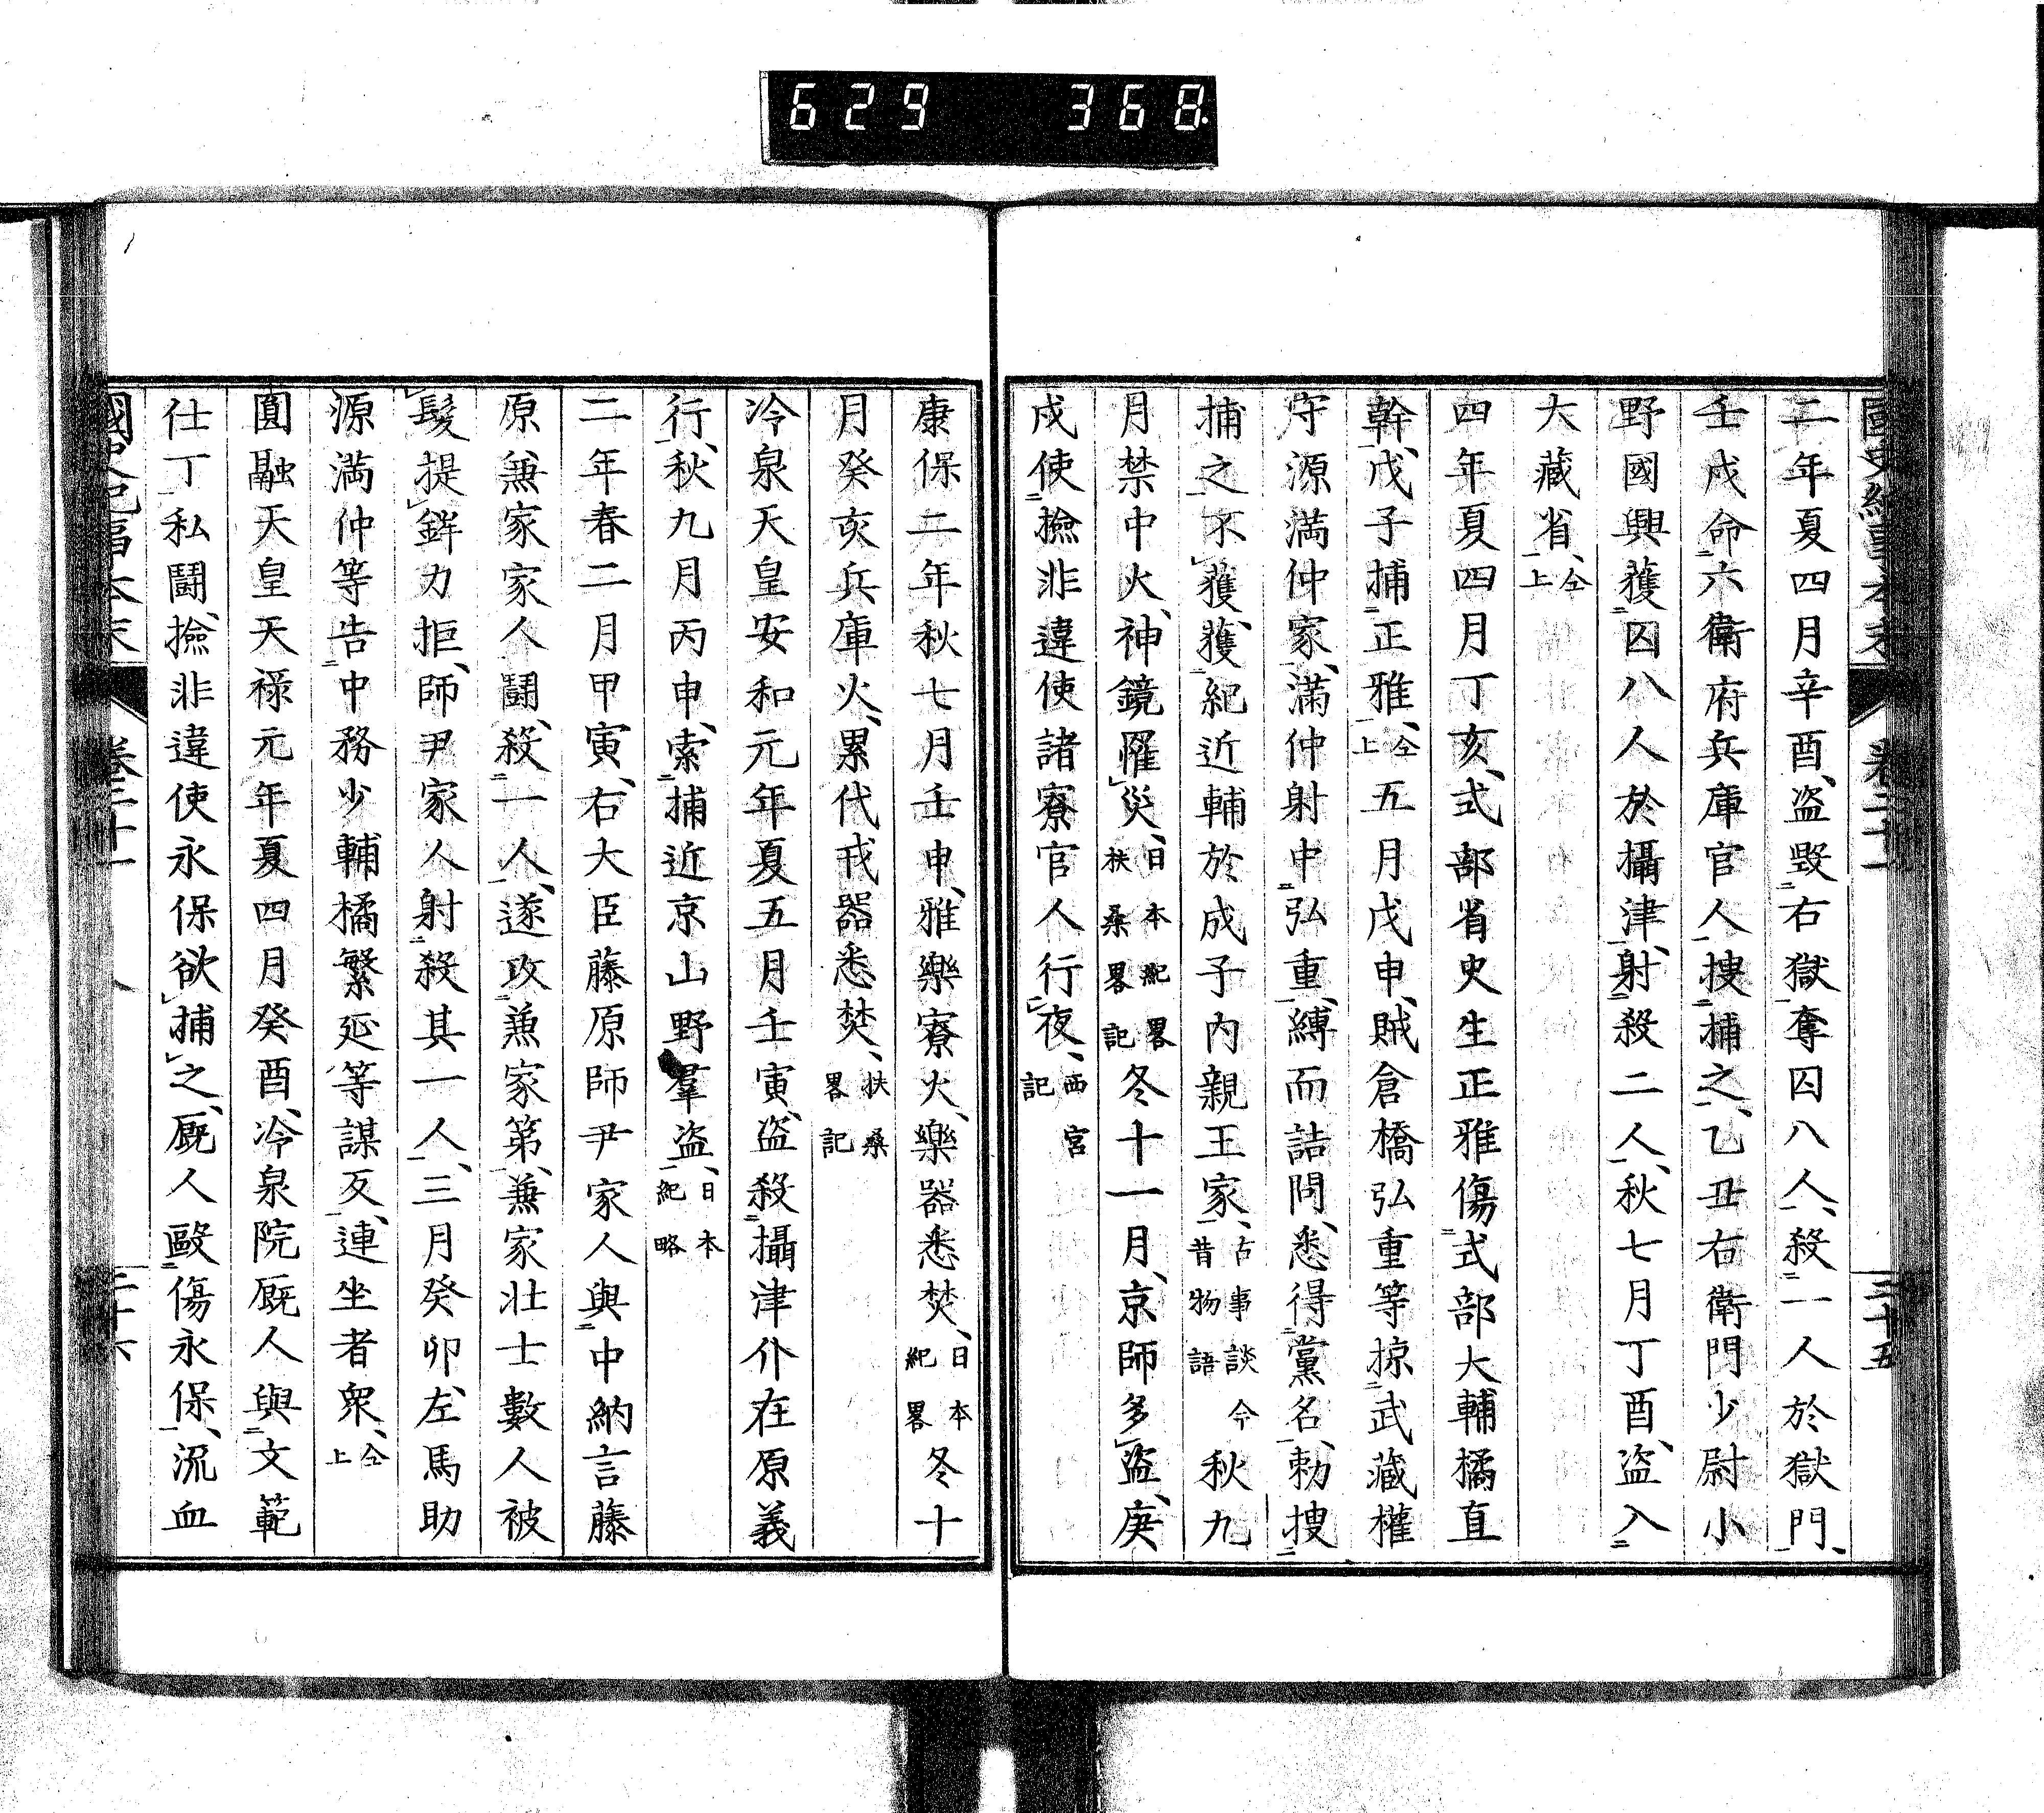 629 368
國史紀事本末 卷三十一 三十五
二年夏四月辛酉、盜毀右獄奪囚八人、殺一人於獄門、
壬戌命六衛府兵庫官人搜捕之、乙丑右衛門少尉小
野國興獲囚八人於攝津、射殺二人、秋七月丁酉、盜入
大藏省、仝上
四年夏四月丁亥、式部省史生正雅傷式部大輔橘直
幹、戊子捕正雅、仝上五月戊申、賊倉橋弘重等掠武藏權
守源滿仲家、滿仲射中弘重、縛而詰問、悉得黨名、勅搜
捕之、不獲、獲紀近輔於成子內親王家、古事談今昔物語秋九
月禁中火、神鏡罹災、日本紀畧扶桑畧記冬十一月、京師多盜、庚
戌使撿非違使諸寮官人行夜、西宮記
康保二年秋七月壬申、雅樂寮火、樂器悉焚、日本紀畧冬十
月癸亥兵庫火、累代戎器悉焚、扶桑畧記
冷泉天皇安和元年夏五月壬寅、盜殺攝津介在原義
行、秋九月丙申、索捕近京山野羣盜、日本紀略
二年春二月甲寅、右大臣藤原師尹家人與中納言藤
原兼家家人鬪、殺一人、遂攻兼家第、兼家壯士數人被
髮提鉾力拒、師尹家人射殺其一人、三月癸卯、左馬助
源滿仲等告中務少輔橘繁延等謀反、連坐者衆、仝上
圓融天皇天祿元年夏四月癸酉、冷泉院厩人與文範
仕丁私鬪、撿非違使永保欲捕之、厩人毆傷永保、流血
國史紀事本末 卷三十一 三十六